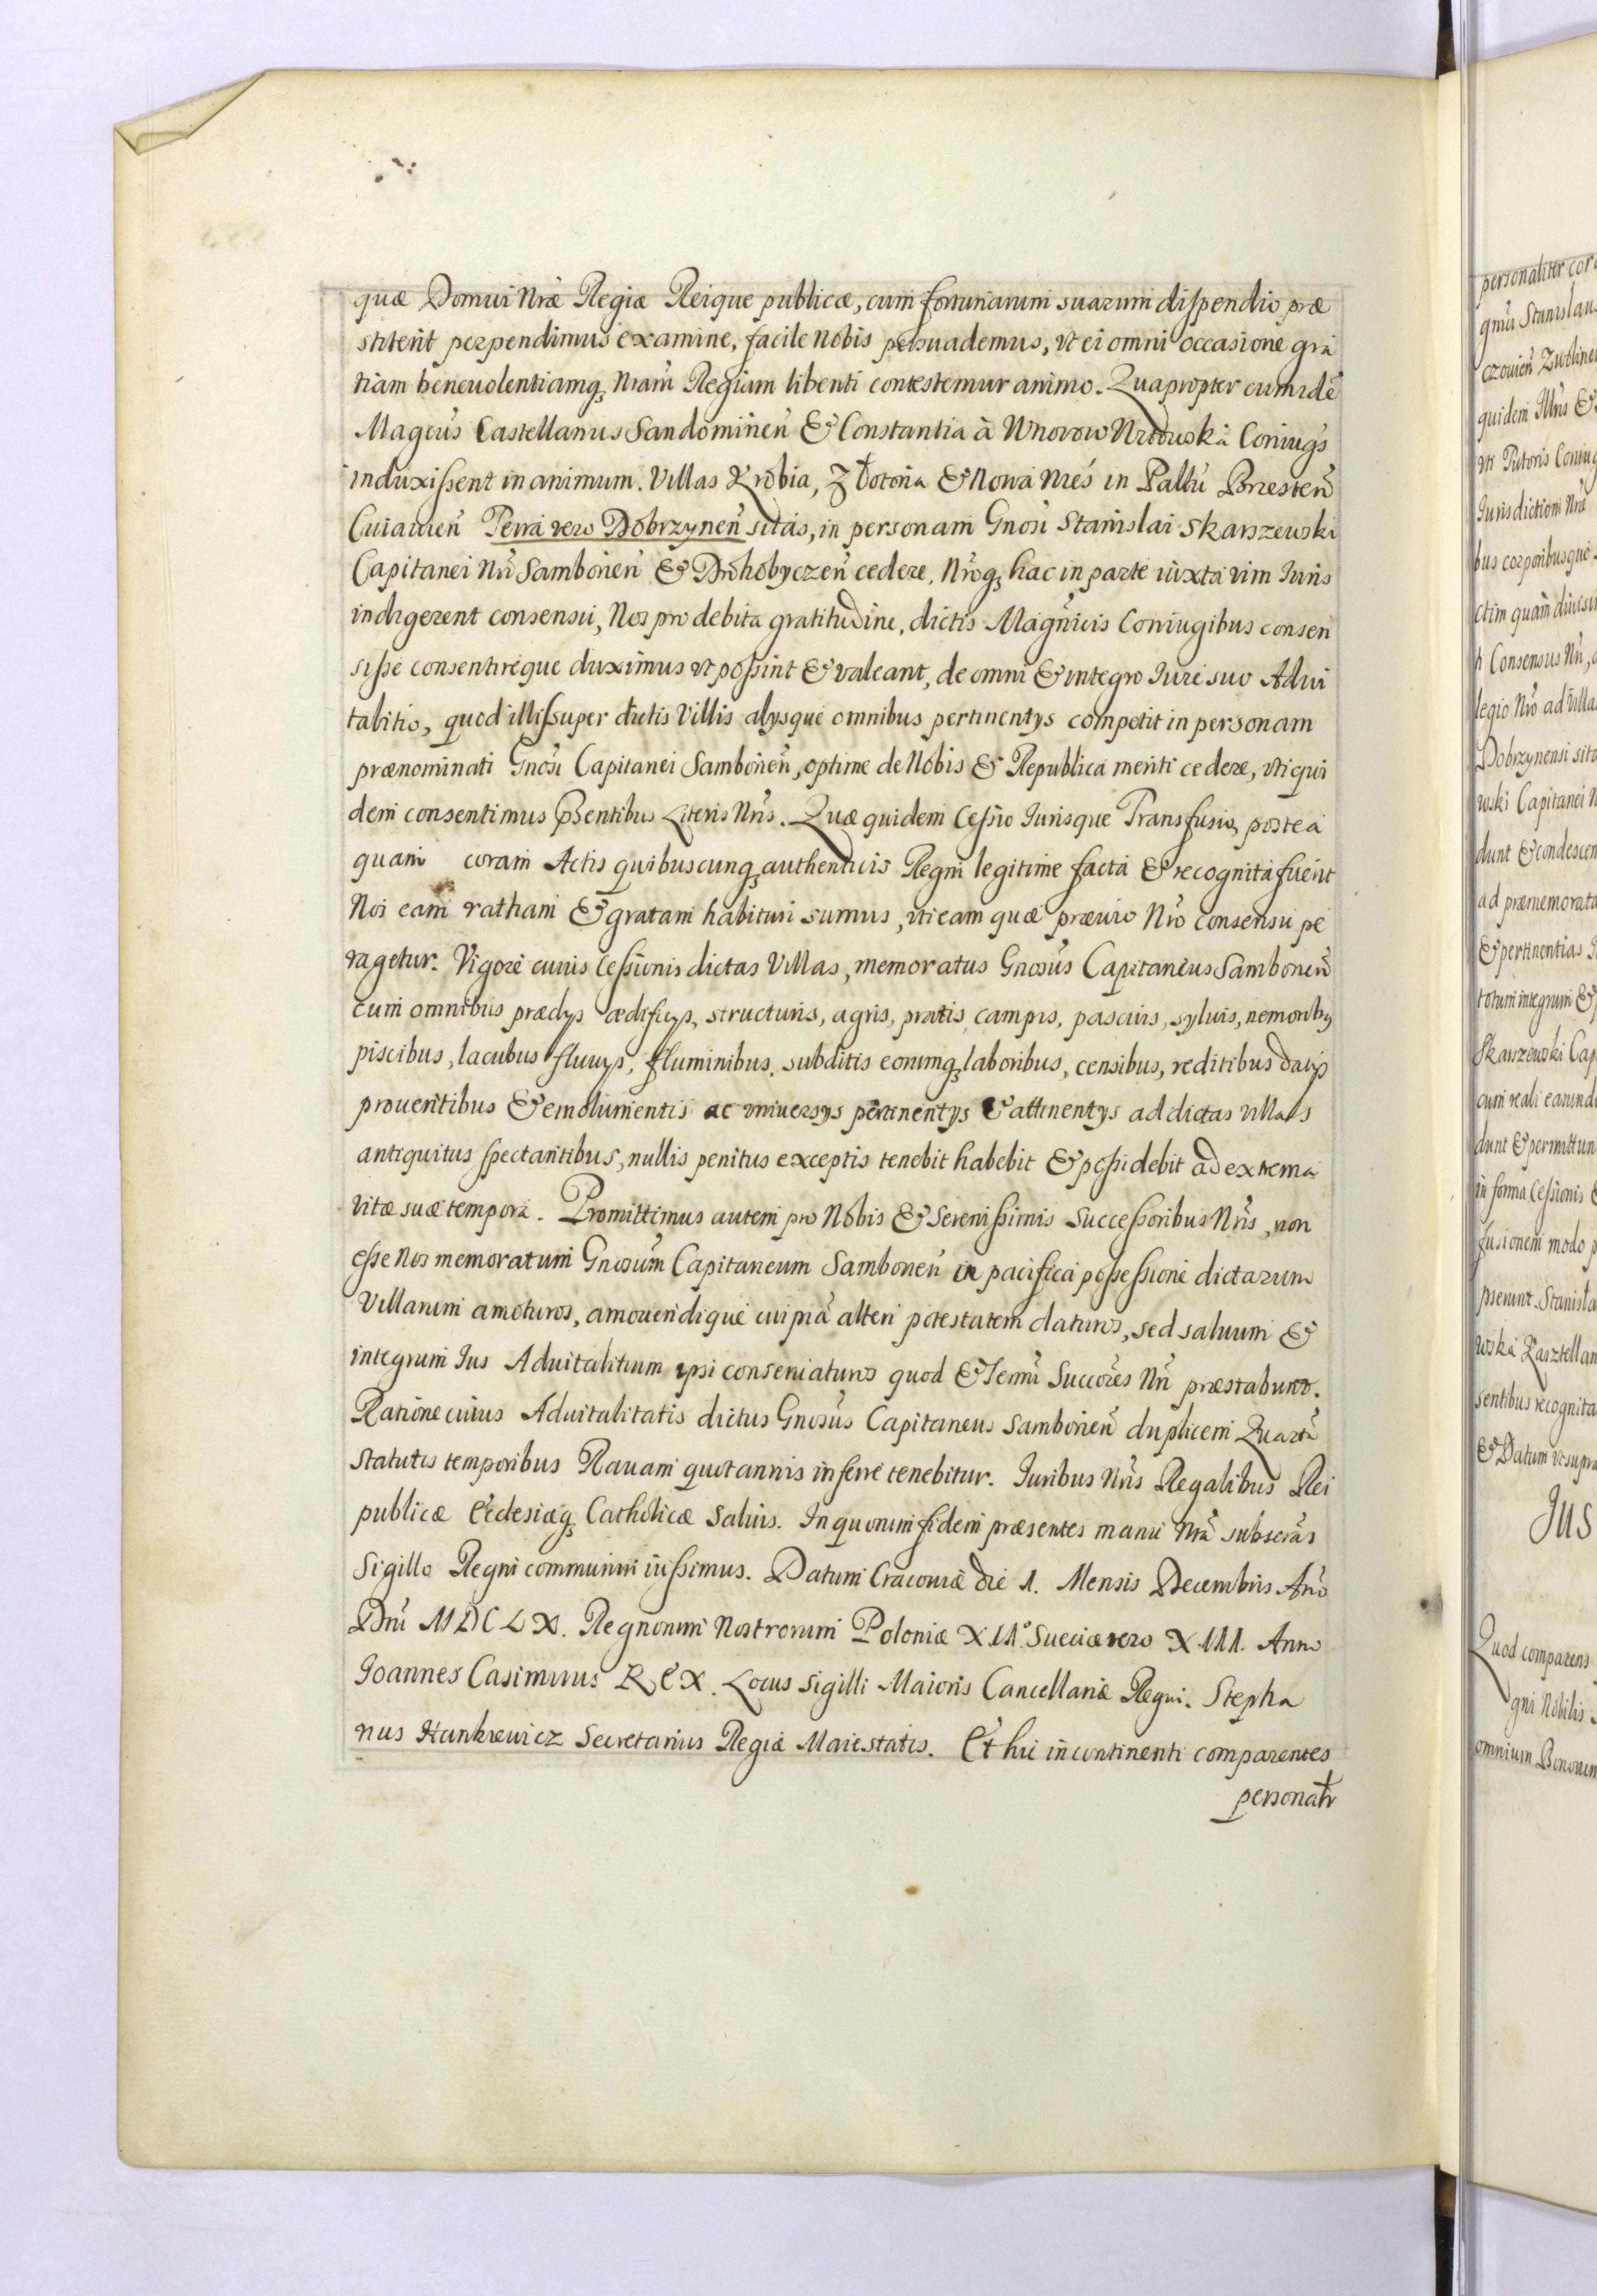 quæ Domui Nræ Regiæ Reique publicæ, cum fortunarum suarum dispendio præ
stiterit perpendimus examine, facile Nobis persuademus, vt ei omni occasione gra
tiam beneuolentiamq; Nram Regiam libenti contestemur animo. Quapropter cum idē
Magcus Castellanus Sandomirien̄ & Constantia à Wrovow Coniugs
induxissent in animum. Villas Krobia, Złotoria & Nowa Wies in Pallū Brzesten̄
Cuiauien̄ Terra vero Dobrzynen̄ sitas, in personam Gnosi Stanislai Skarszewski
Capitanei Nrī Samborien̄ & Drohobyczen̄ cedere, Nroq; hac in parte iuxta vim Iuris
indigerent consensu, Nos pro debita gratitudine, dictis Magnicis Coniugibus consen
sisse consentireque duximus vt possint & valeant, de omni & integro Iure suo Advi
talitio, quod illis super dictis Villis alysque omnibus pertinentys competit in personam
prænominati Gnosi Capitanei Samborien̄, optime de Nobis & Republica meriti cedere, vti qui
dem consentimus Pśentibus Literis Nris. Quæ quidem Cessio Iurisque Transfusio, postea
quam coram Actis quibuscunq; authenticis Regni legitime facta & recognita fuerit
Nos eam ratham & gratam habituri sumus, vti eam quæ præuio Nro consensu pe
ragetur. Vigore cuius Cessionis dictas Villas, memoratus Gnosus Capitaneus Samborien̄
cum omnibus prædys ædificys, structuris, agris, pratis, campis, pascuis, syluis, nemoriby
piscibus, lacubus fluuys, fluminibus, subditis eorumq; laboribus, censibus, reditibus datys
prouentibus & emolumentis ac vniuersys pertinentys & attinentys ad dictas villas
antiquitus spectantibus, nullis penitus exceptis tenebit habebit & possidebit ad extema
vitæ suæ tempora. Promittimus autem pro Nobis & Serenissimis Successoribus Nris, non
esse Nos memoratum Gnosum Capitaneum Samborien̄ in pacifica possessione dictarum
Villarum amoturos, amouendique cuipiā alteri potestatem daturos, sed saluum &
integrum Ius Aduitalitium ipsi conseruaturos quod & Sermi Succores Nri præstabunt.
Ratione cuius Aduitalitatis dictus Gnosus Capitaneus Samborien̄ duplicem Quartā
statutis temporibus Rauam quotannis inferre tenebitur. Iuribus Nris Regalibus Rei
publicæ Ecclesiæq; Catholicæ saluis. In quorum fidem præsentes manu Nrā subscras
Sigillo Regni communiri iussimus. Datum Cracouiæ die 1. Mensis Decembris Ano
Dni MDCLX. Regnorum Nostrorum Poloniæ XII° Sueciæ vero XIII. Anno
Ioannes Casimirus REX. Locus Sigilli Maioris Cancellariæ Regni. Stepha
nus Hankiewicz Secretarius Regiæ Maiestatis. Et hic in continenti comparentes
personatr
personaliter cor
gnia Stanislaus
quidem Illris &
vti Tutoris Coniug
Iurisdictioni Nræ
bus corporibusque
ctim quam diuisim
ti Consensus Nri,
legio Nro ad Villa
Dobrzynensi sita
wski Capitanei N
dunt & condescen
ad præmemorata
& pertinentias I
totum integrum &
Skarszewski Cap
cum reali earund
dunt & permittun
in forma Cessionis &
fusionem modo p
pserunt. Stanisła
wska Kasztellan
sentibus recognita
& Datum vt supra
Jus
Quod comparens
gni Nobilis
omnium Bonorum